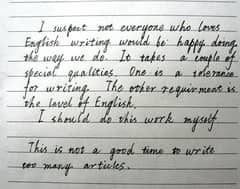 I suspect not everyone who loves
English writing would be happy doing
the way we do. It takes a couple of
special qualities. One is a tolerance
for writing. The other requirment is
the level of English.
I should do this work myself
This is not a good time to write
too many articles.